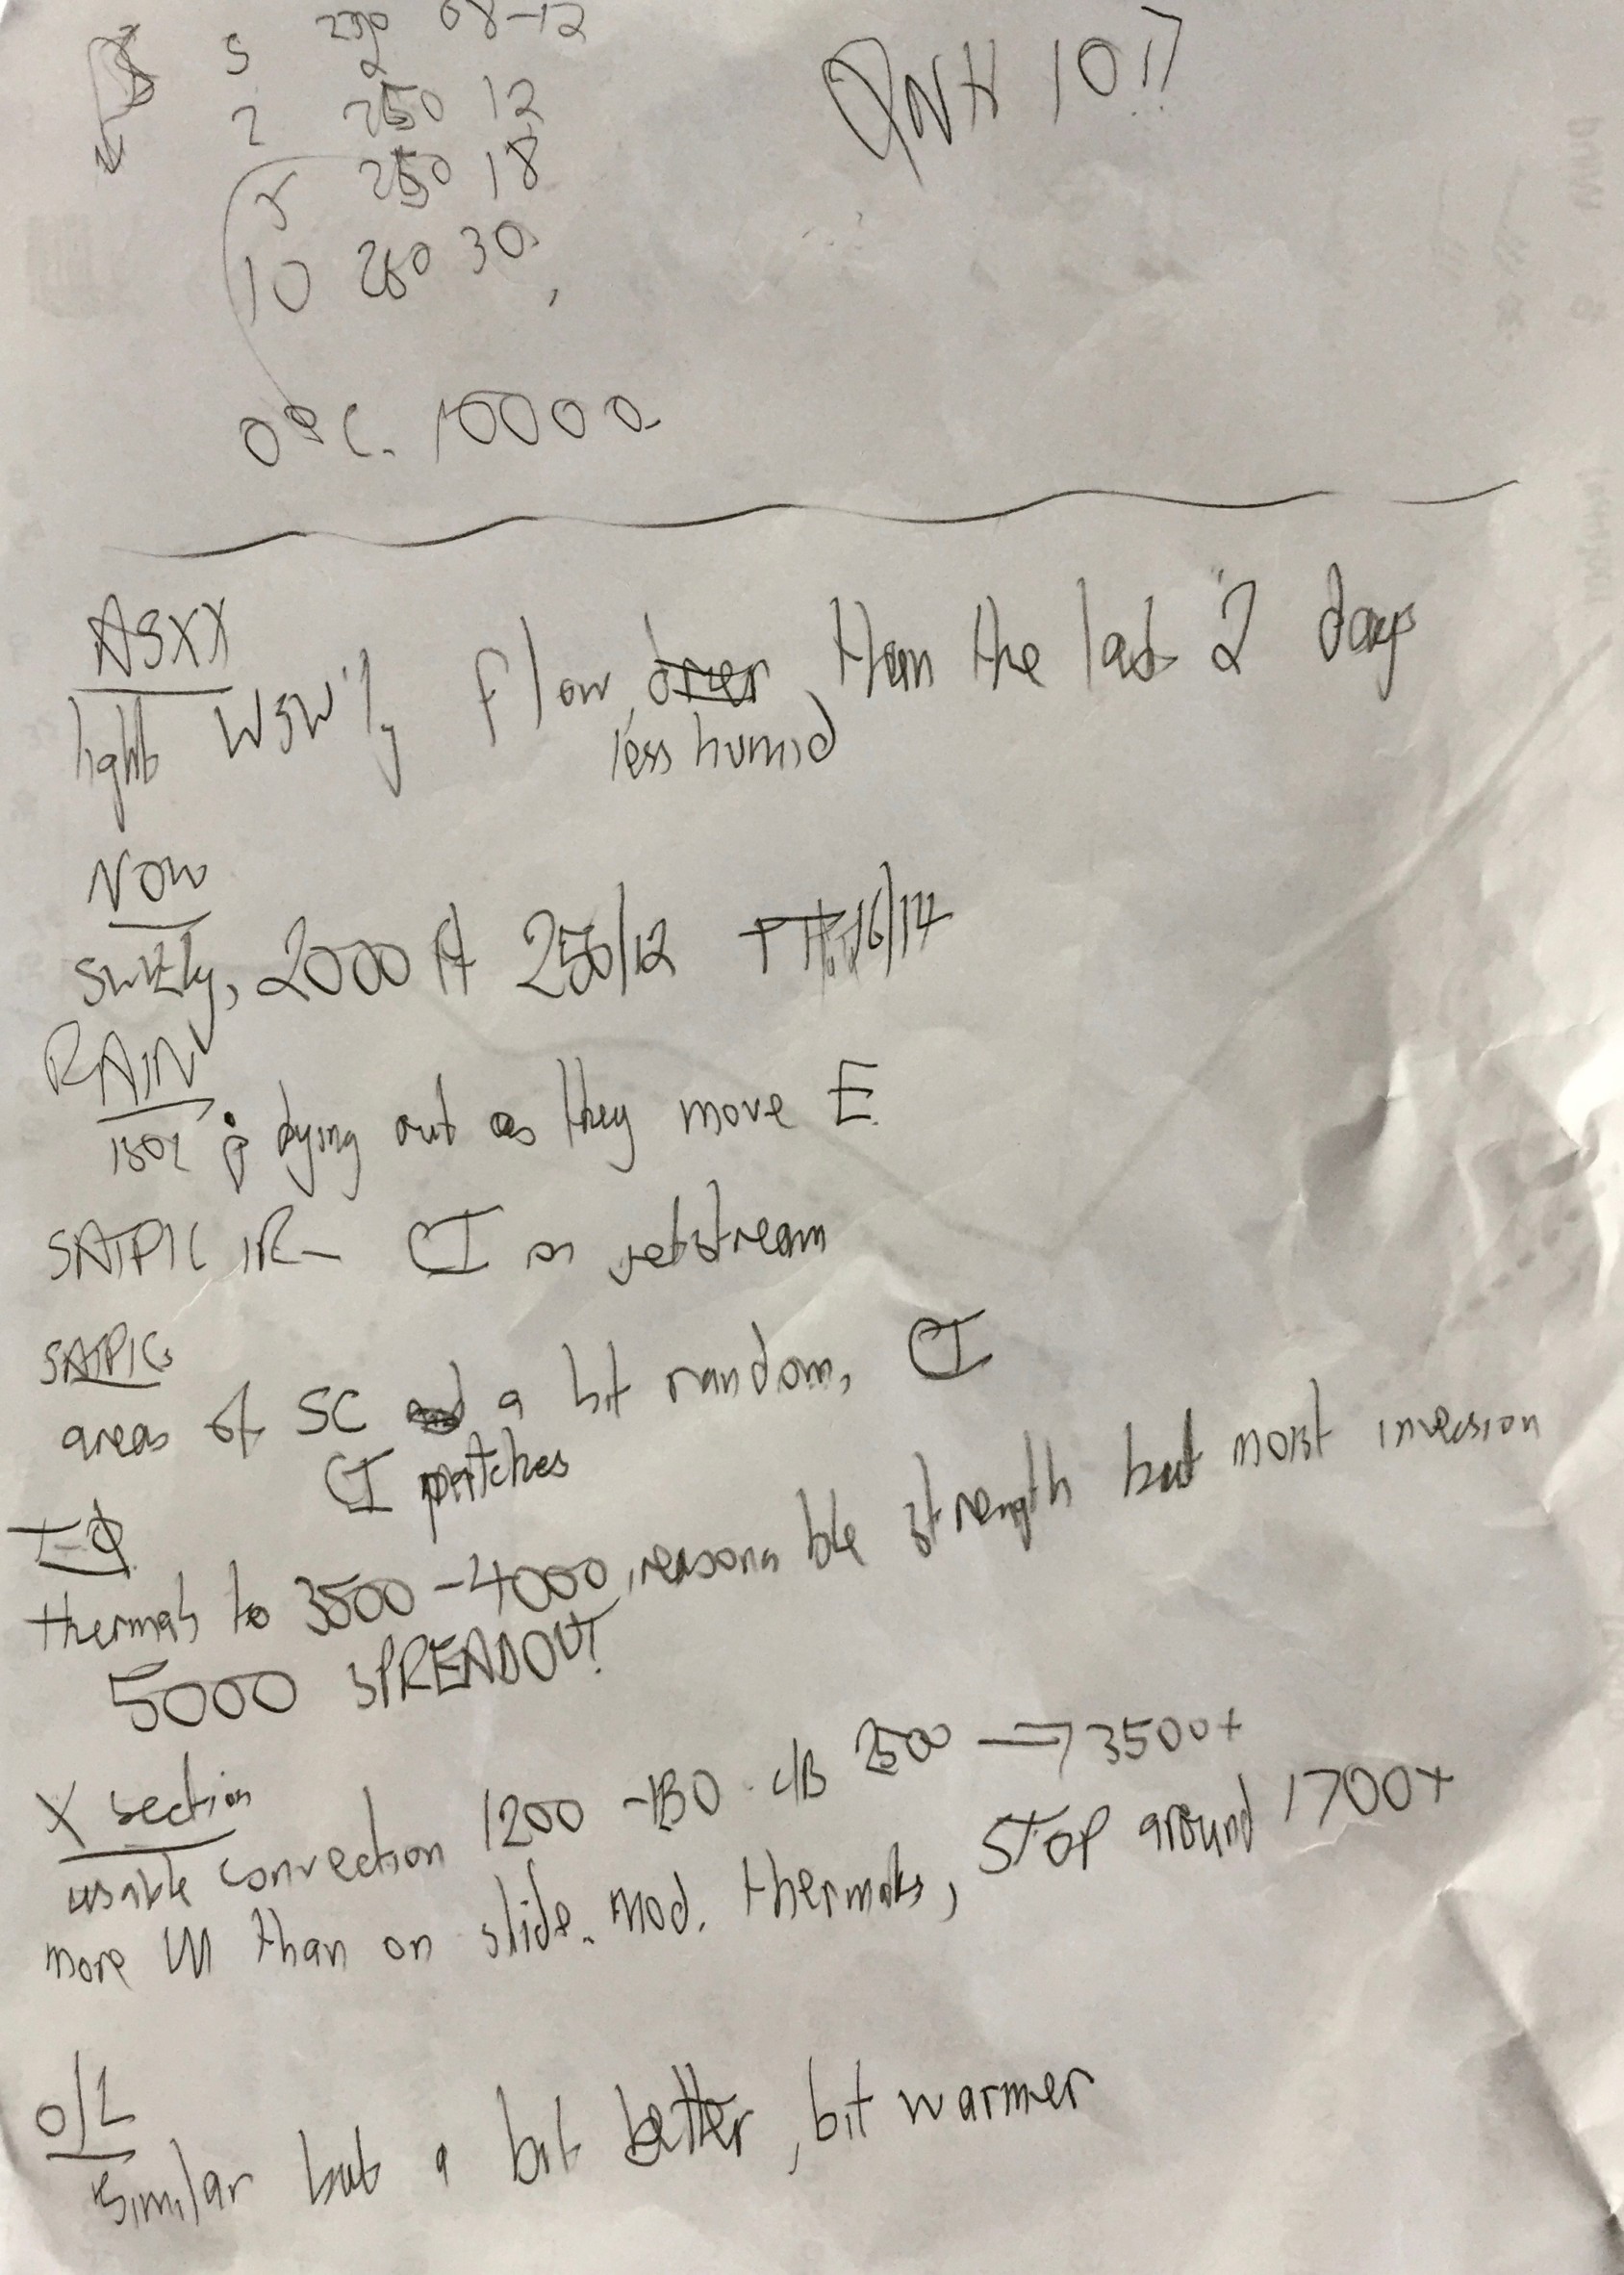 S 290 08-12
QNH 1017
2 250 12
5 250 18
10 250 30
0°C. 10000
ASXX
light WSW'ly flow, drier than the last 2 days
less humid
NOW
SWLY, 2000 ft 250/12 16/14
RAIN
dying out as they move E
SATPIC IR - CI on jetstream
SATPIC
areas of SC a bit random, CI
CI patches
T-Φ
thermals to 3500-4000, reasonable strength but moist inversion
5000 SPREADOUT!
X section
usable convection 1200 - C/B 2500 → 3500+
more than on slide. mod. thermals, STOP around 1700+
O/L
Similar but a bit better, bit warmer